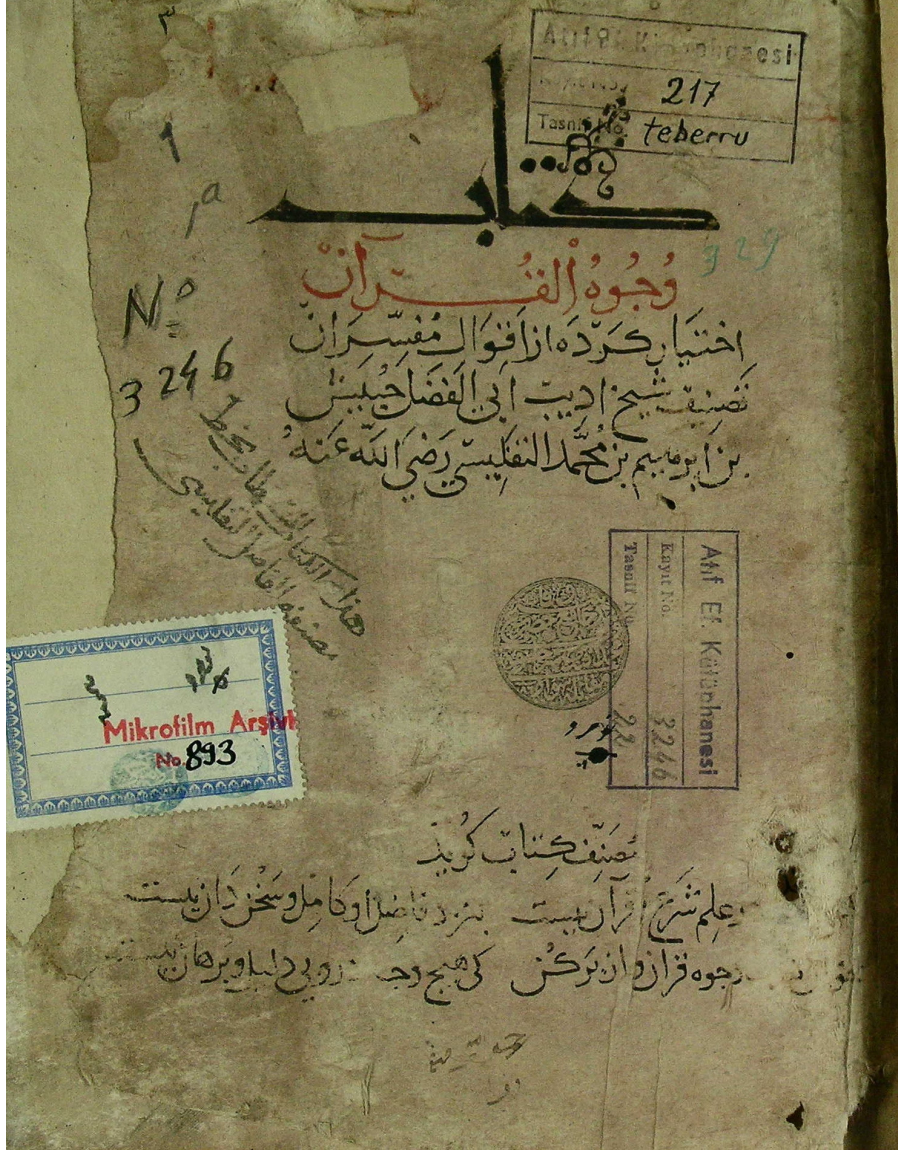 ٣
Atıf Ef. Kütüphanesi
217
Tasnif No. teberru
١
1a
كتاب
329
وُجُوهُ الْقُرآنْ
No
3246
اختيار كرده از اقوال مفسّران
تصنيف شيخ اديب ابى الفضل حُبيش
بن ابرهيم بن محمّد التفليسي رَضِيَ الله عَنهُ
هذا الكتاب بخط
مصنفه الفاضل التفليسى
Atıf Ef. Kütünhanesi
Kayıt No. 3246
Tasnif No. 22
Mikrofilm Arşivi
No. 893
مُصَنِّف كِتاب كُويذ
علم شرح قرآن نيست بنزد فاضل و كامل و سخن دان نيست
وجوه قرآن وان بركن كى هيچ وجه رويى دليل و برهان نيست